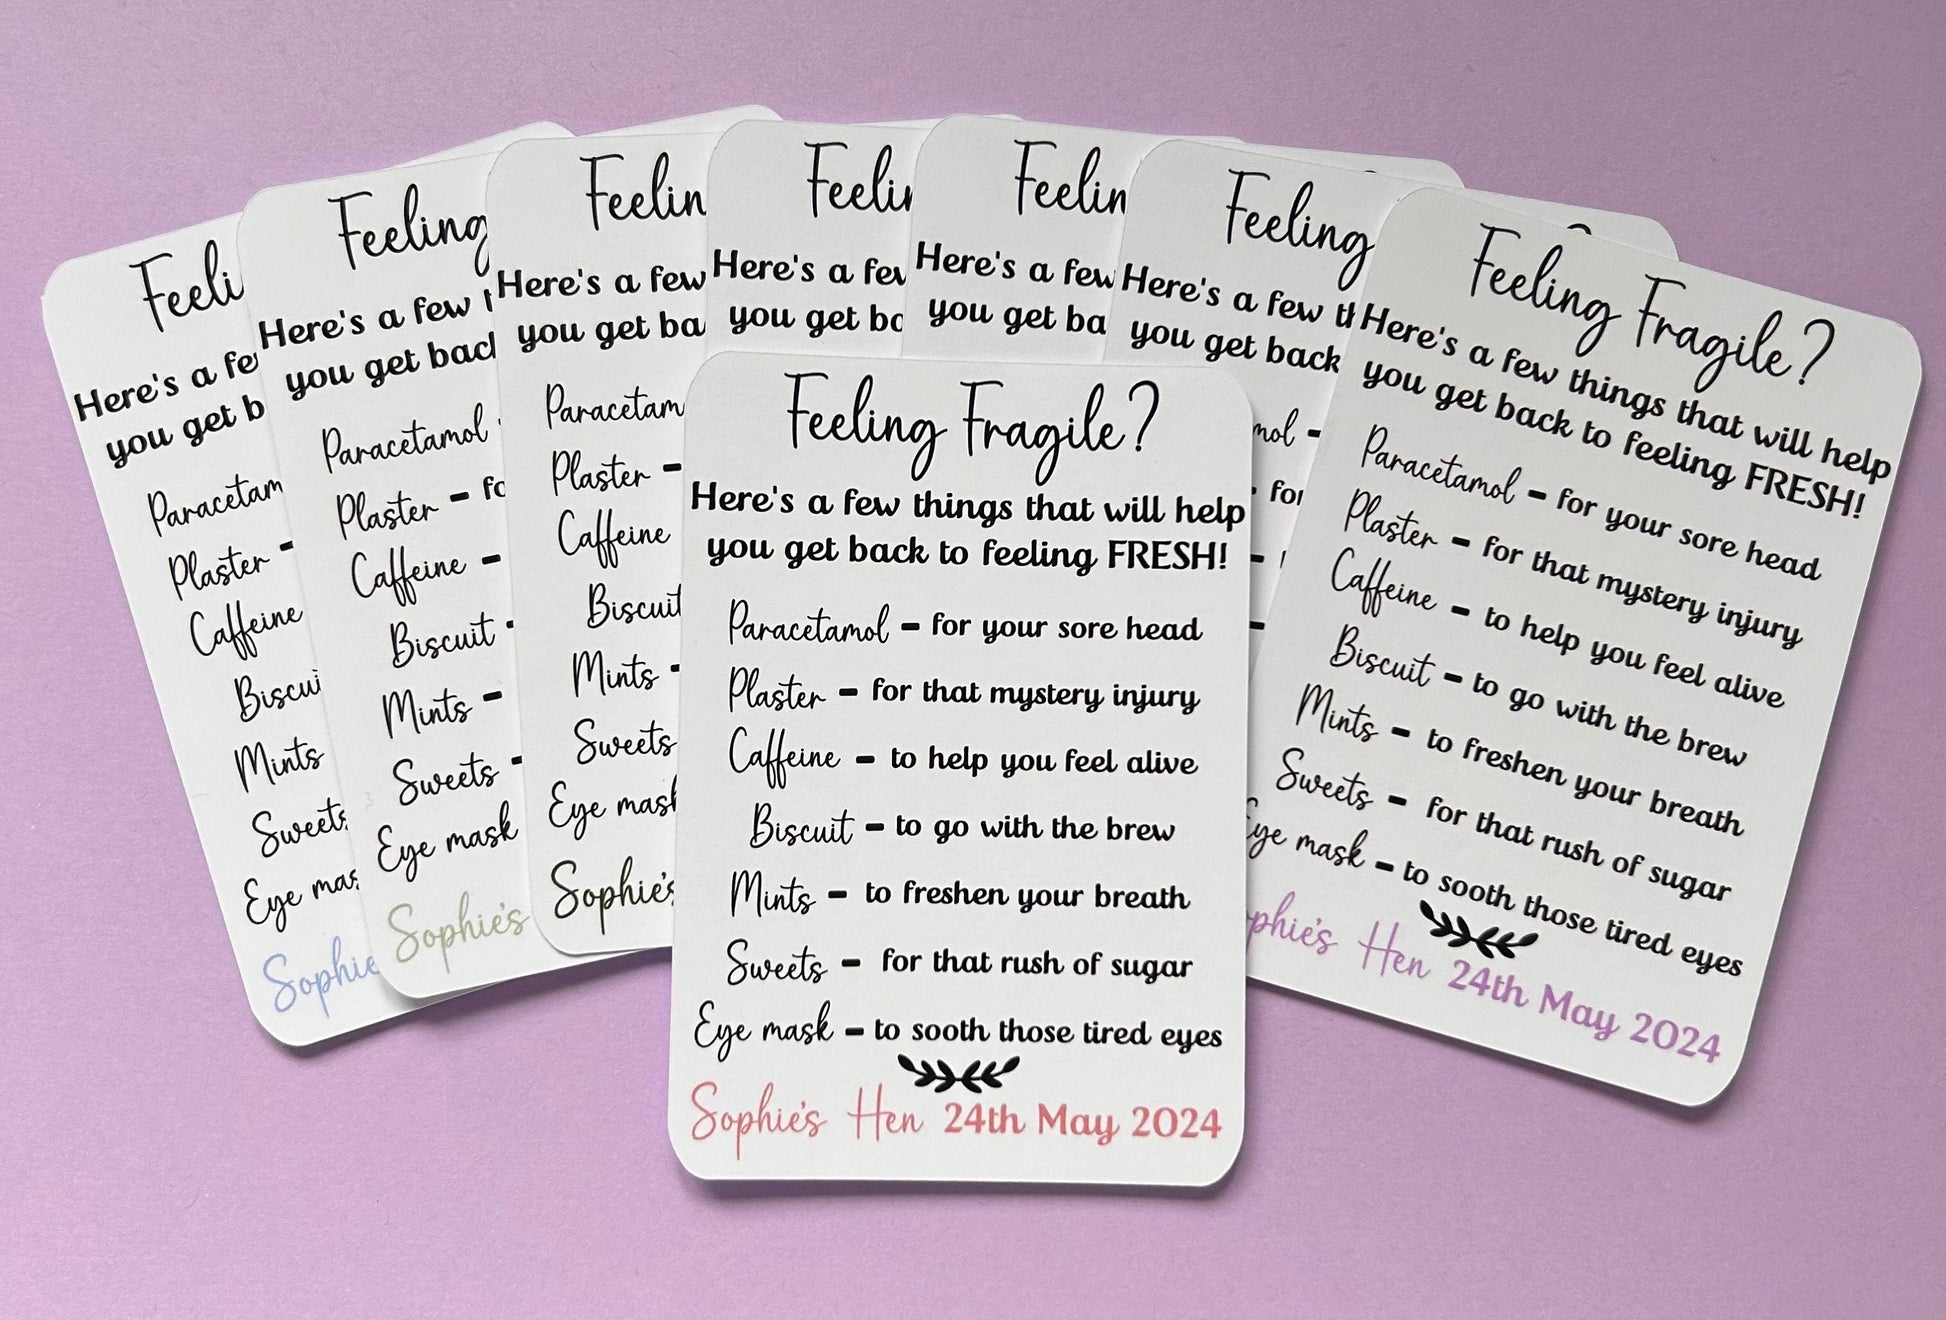 Feeli
Here's a fe
you get b
Paracetam
Plaster -
Caffeine
Biscui
Mints
Sweets
Eye mas
Sophie
Feeling
Here's a few
you get back
Paracetamol
Plaster - fo
Caffeine -
Biscuit -
Mints -
Sweets -
Eye mask
Sophie's
Feelin
Here's a few
you get ba
Paracetam
Plaster -
Caffeine
Biscuit
Mints -
Sweets
Eye mask
Sophie's
Feelin
Here's a few
you get ba
Feelin
Here's a few
you get ba
Feeling
Here's a few th
you get back
mol -
for
-
-
Feeling Fragile?
Here's a few things that will help
you get back to feeling FRESH!
Paracetamol - for your sore head
Plaster - for that mystery injury
Caffeine - to help you feel alive
Biscuit - to go with the brew
Mints - to freshen your breath
Sweets - for that rush of sugar
Eye mask - to sooth those tired eyes
Sophie's Hen 24th May 2024
Feeling Fragile?
Here's a few things that will help
you get back to feeling FRESH!
Paracetamol - for your sore head
Plaster - for that mystery injury
Caffeine - to help you feel alive
Biscuit - to go with the brew
Mints - to freshen your breath
Sweets - for that rush of sugar
Eye mask - to sooth those tired eyes
phie's Hen 24th May 2024